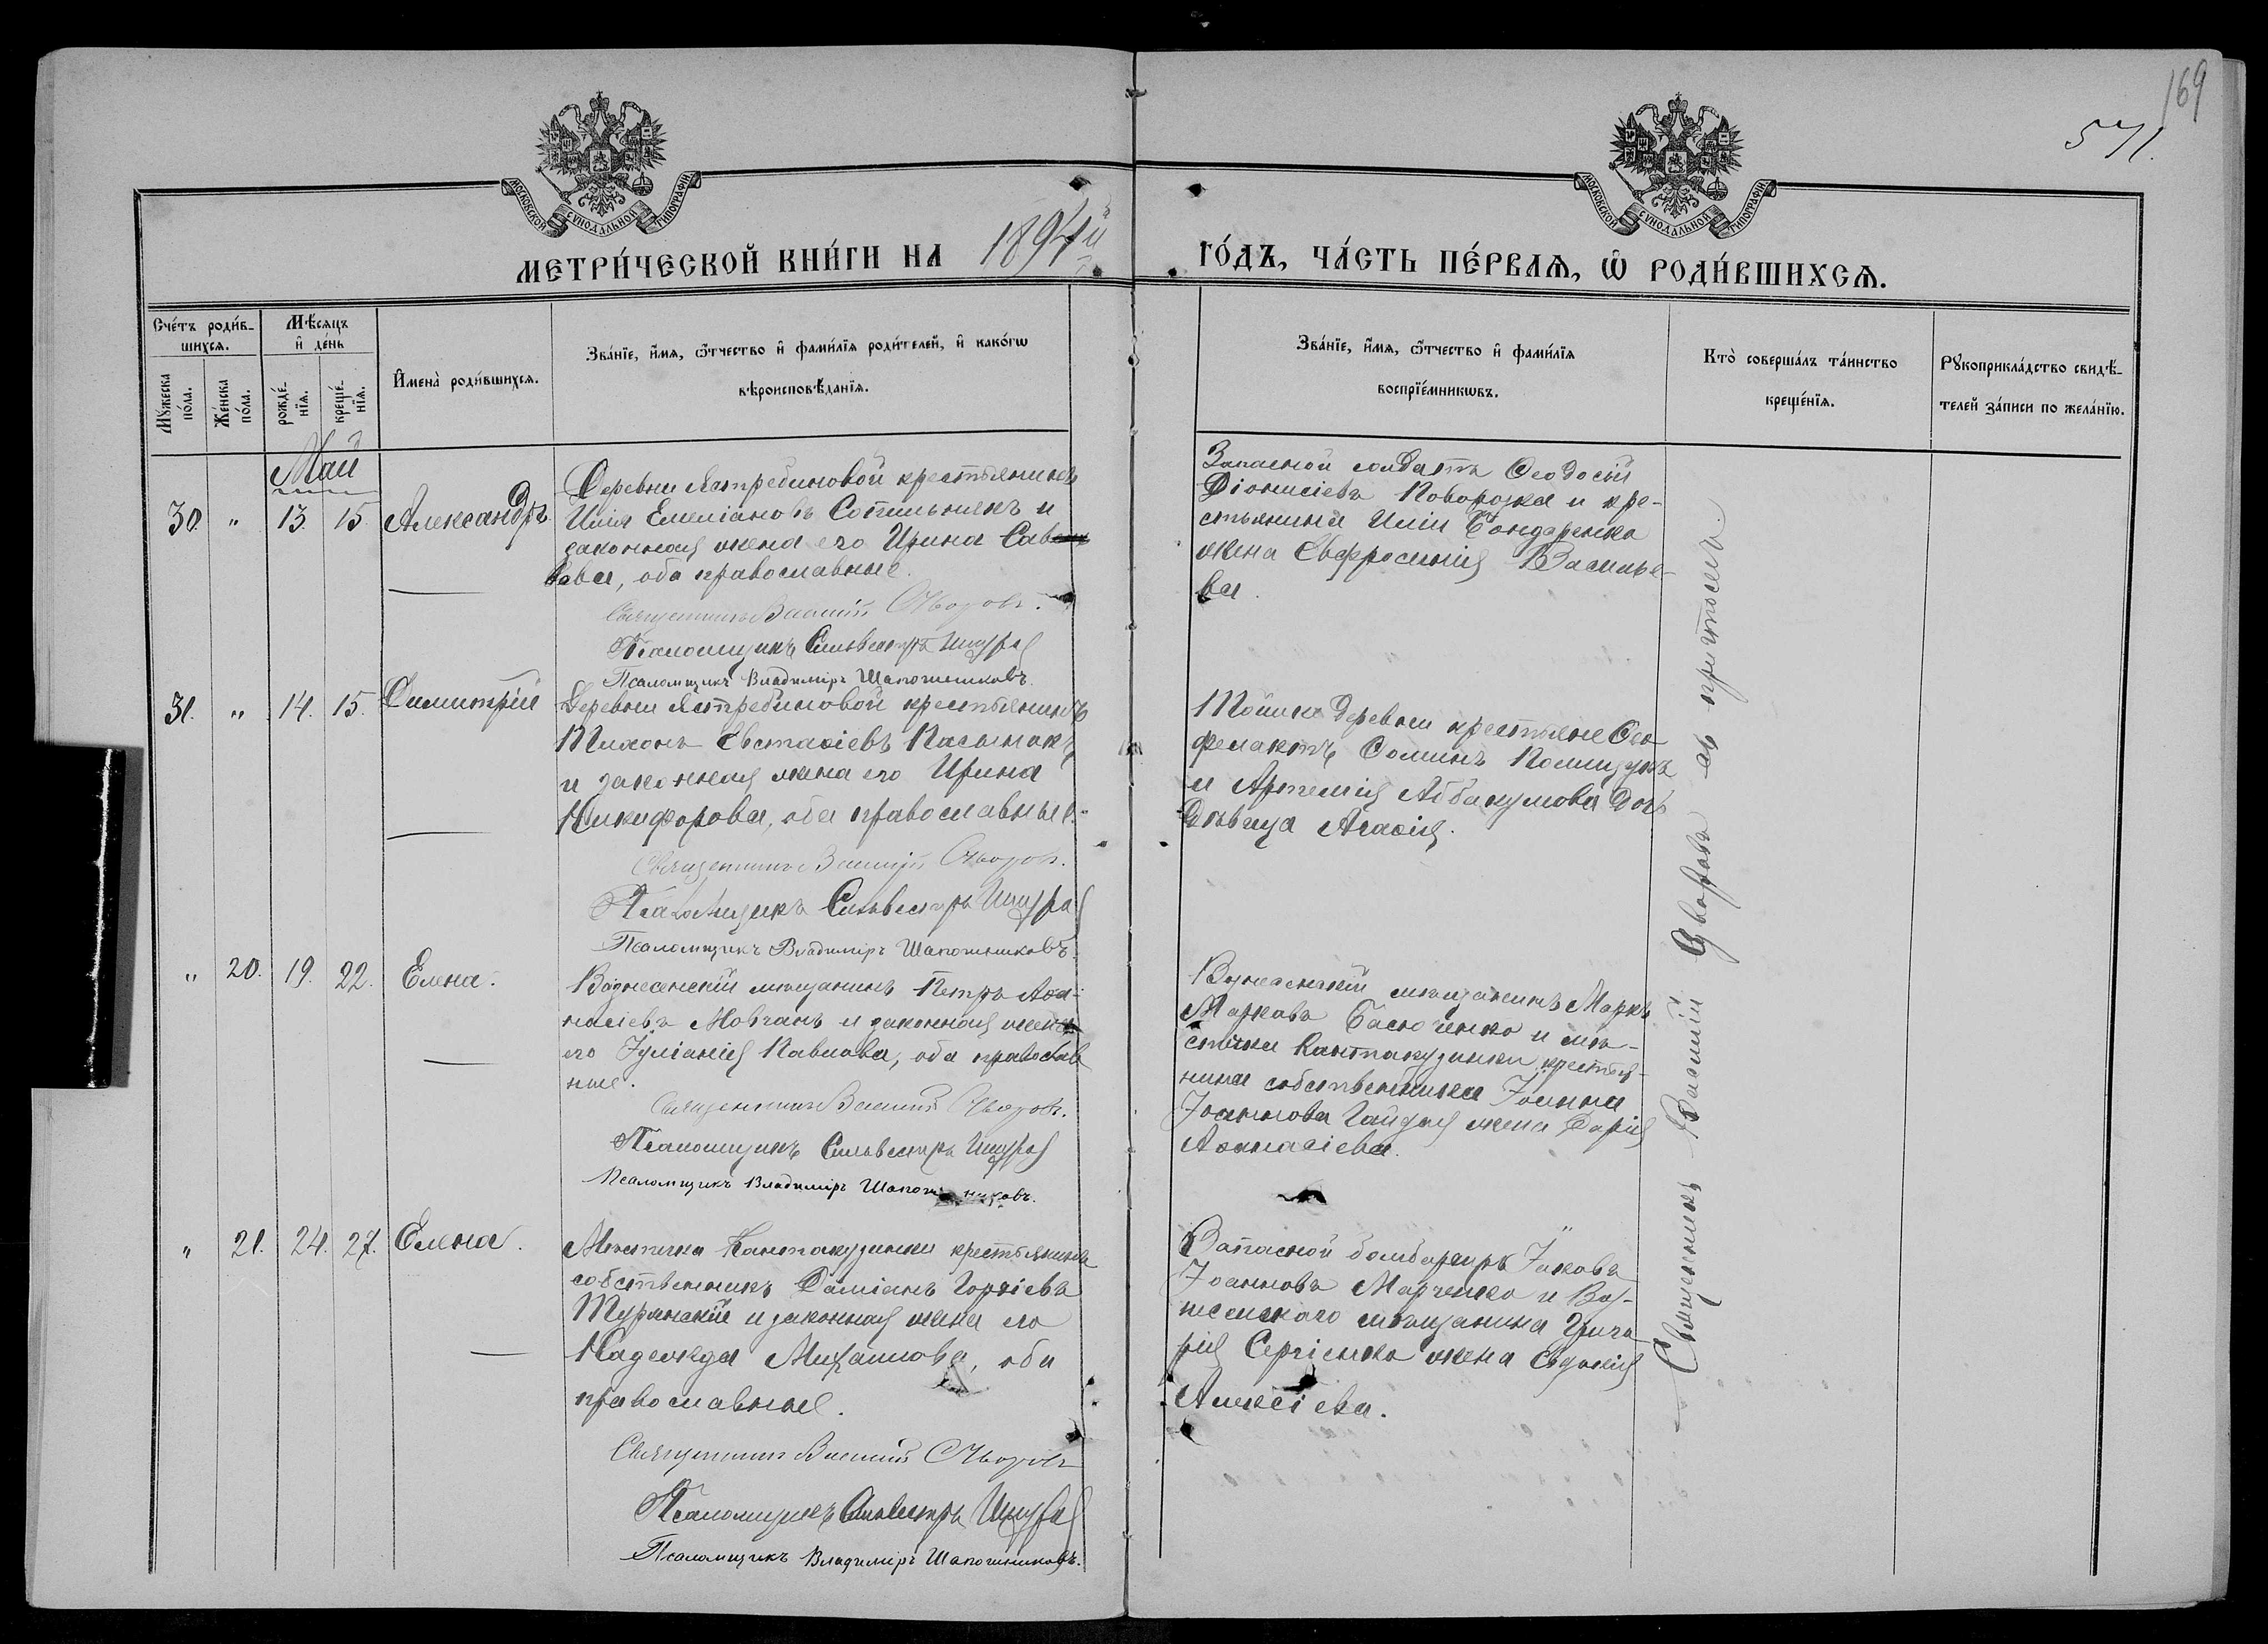 169
571.
МОСКОВСКОЙ СѴНОДАЛЬНОЙ ТИПОГРАФІИ
МОСКОВСКОЙ СѴНОДАЛЬНОЙ ТИПОГРАФІИ
МЕТРИ́ЧЕСКОЙ КНИ́ГИ НА 1894й
ГО́ДЪ, ЧА́СТЬ ПЕ́РВАѦ, Ѡ҆ РОДИ́ВШИХСѦ.
Сче́тъ роди́в-
шихсѧ.
Мѣ́сѧцъ
и҆ де́нь
Мꙋ́жеска
по́ла.
Же́нска
по́ла.
рожде́-
нїѧ.
креще́-
нїѧ.
И҆мена̀ роди́вшихсѧ.
Зва́нїе, и҆́мѧ, ѻ҆́тчество и҆ фами́лїѧ роди́телей, и҆ како́гѡ
вѣроисповѣ́данїѧ.
Зва́нїе, и҆́мѧ, ѻ҆́тчество и҆ фами́лїѧ
воспрїе́мникѡвъ.
Кто̀ соверша́лъ та́инство
креще́нїѧ.
Рꙋкоприкла́дство свидѣ́-
телей за́писи по жела́нїю.
Май
30. " 13. 15. Александръ.
Деревни Ястребиновой крестьянинъ
Илія Емеліановъ Сотильнякъ и
законная жена его Ирина Сав
вова, оба православные.
Священникъ Василій
Псаломщикъ Сильвестръ
Псаломщикъ Владиміръ Шапошниковъ.
Запасной солдатъ Ѳеодосій
Діонисіевъ Поворозка и кре-
стьянина Иліи Бондаренка
жена Евфросинія Василье-
ва.
31. " 14. 15. Димитрій
Деревни Ястребиновой крестьянинъ
Тихонъ Евстаѳіевъ Пасынокъ
и законная жена его Ирина
Никифорова, оба православные.
Священникъ Василій
Псаломщикъ Сильвестръ
Псаломщикъ Владиміръ Шапошниковъ.
Тойже деревни крестьяне Ѳео
филактъ Ѳоминъ Полищукъ
и Артемія Аббакумова дочь
дѣвица Агаѳія.
" 20. 19. 22. Елена.
Вознесенскій мѣщанинъ Петръ Аѳа-
насіевъ Мовчанъ и законная жена
его Іуліанія Павлова, оба православ
ные.
Священникъ Василій
Псаломщикъ Сильвестръ
Псаломщикъ Владиміръ Шапошниковъ.
Вознесенскій мѣщанинъ Маркъ
Марковъ и мѣ-
стечка Кантакузинки крестья-
нина собственника Іоанна
Іоаннова Гайдая жена Дарія
Аѳанасіева.
" 21. 24. 27. Елена.
Мѣстечка Кантакузинки крестьянинъ
собственникъ Даміанъ Гордіевъ
Туранскій и законная жена его
Надежда Михаилова, оба
православные.
Священникъ Василій
Псаломщикъ Сильвестръ
Псаломщикъ Владиміръ Шапошниковъ.
Запасной бомбардиръ Іаковъ
Іоанновъ Марченко и Воз-
несенскаго мѣщанина Григо
рія Сергіенка жена Евдокія
Алексіева.
Священникъ Василій съ причтомъ.